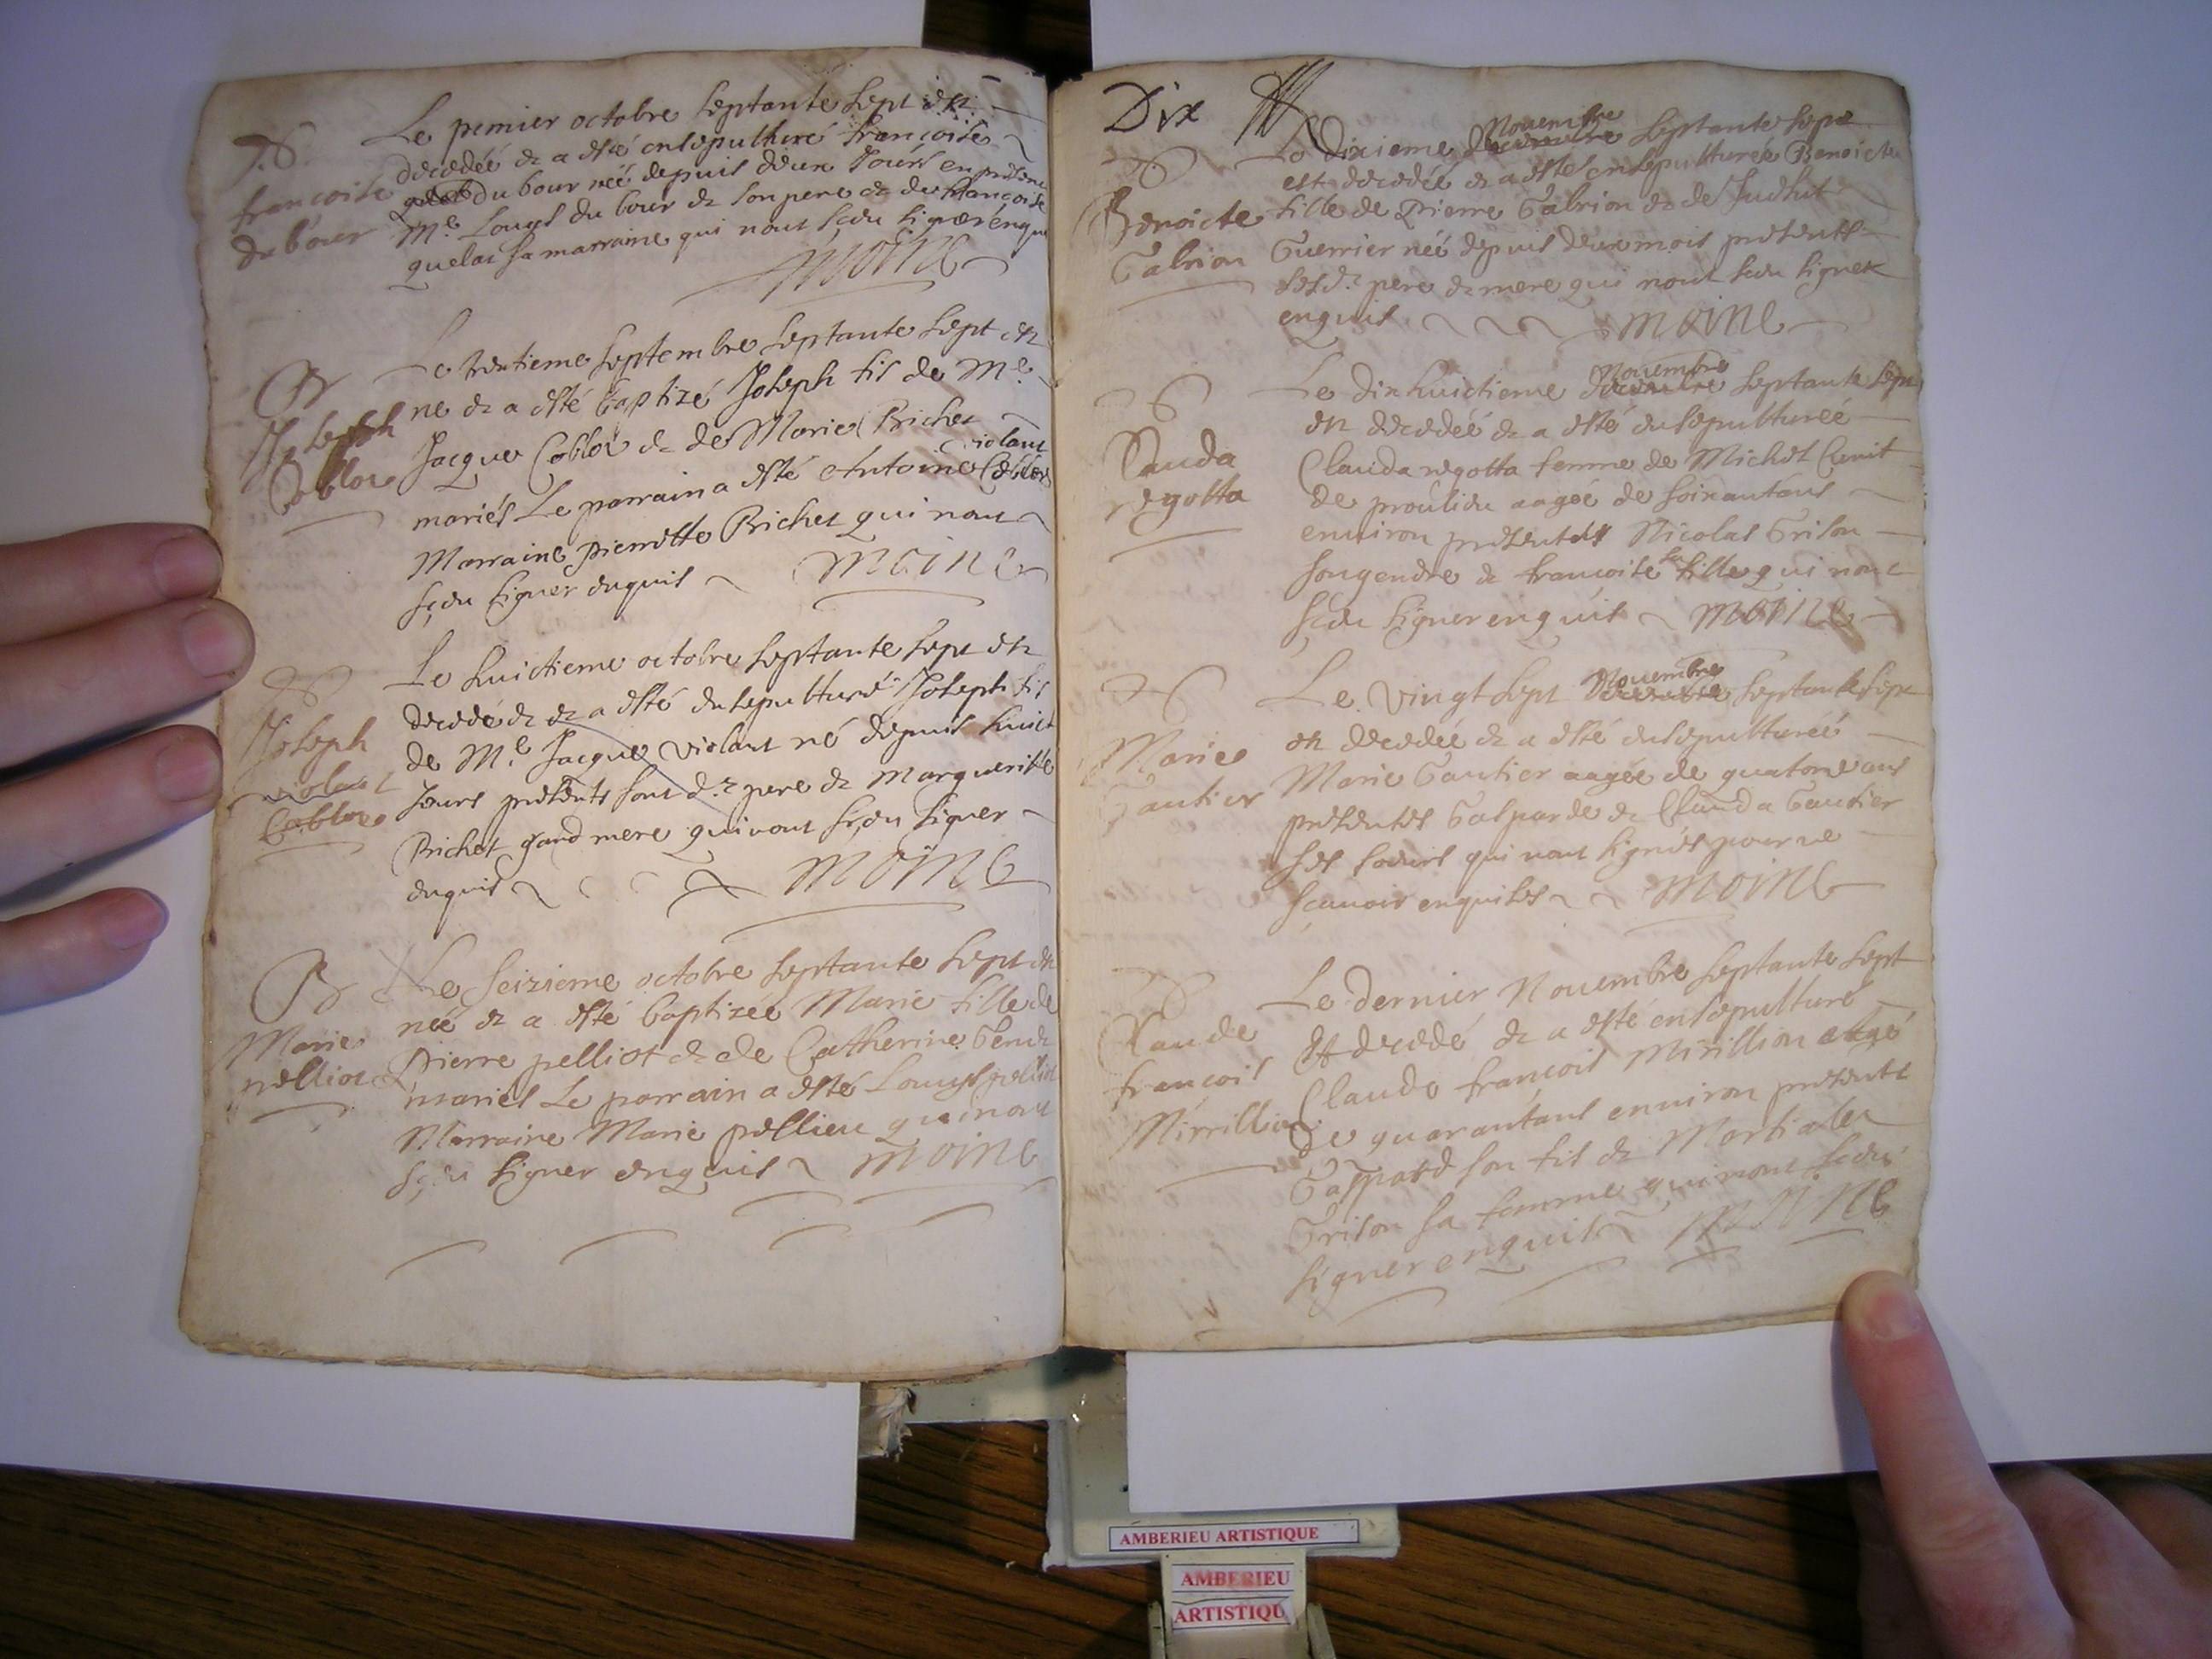 Le pemier octobre septante sept est
decedée & a esté ensepulturé francoise
du bour neé depuis deux Jours en presence
Me. Louys du bour & son pere & de francoise
quelat sa marraine qui nont sçeu signer enquis
Moine
francoise
du bour
Le trentieme septembre septante sept est
ne & a esté baptizé Joseph fis de Me.
Jacque Coblot & de Marie Brichet
violant
mariés Le parrain a esté Antoine
Marraine pierrette Brichet qui nont
sçeu signer enquis Moine
B
Joseph
Coblot
Le huictieme octobre septante sept est
decedé & & a esté ensepulturé Joseph fis
de Me. Jacque violant né depuis huict
Jours presents sont d. pere & margueritte
Brichet grand mere qui nont sçeu signer
enquis Moine
Joseph
violant
Coblot
Le seizieme octobre septante sept est
neé & a esté baptizée Marie fille de
Pierre pelliot & de Catherine
mariés Le parrain a esté Louys pelliot
Marraine Marie pellieu qui nont
sçeu signer enquis Moine
B
Marie
pelliot
Dix
Novembre
Le dixieme septante sept
est decedée & a esté ensepulturée Benoicte
fille de Pierre Gabrion & de Judhit
Guerrier neé depuis deux mois presents
sesd. pere & mere qui nont sceu signer
enquis Moine
Benoicte
Gabrion
Novembre
Le dixhuictieme septante sept
est decedéé & a esté ensepulturéé
Clauda regotta femme de Michel
de proulieu aageé de soixantans
environ presents Nicolas Grison
son gendre & francoise sa fille qui nont
sceu signer enquis Moine
Clauda
regotta
Novembre
Le vingt sept septante sept
est decedée & a esté ensepulturéé
Marie Gautier aagée de quatorze ans
presentes Gasparde & Clauda Gautier
ses soeurs qui nont signées pour ne
sçavoir enquises Moine
Marie
Gautier
Le dernier Novembre septante sept
est decedé & a esté ensepulturé
Claude francois Mirillion aagé
de quarantans environ presents
Gaspard son fis & Martialle
Grison sa femme qui nont sceu
signer enquis Moine
Claude
francois
Mirrillion
AMBERIEU ARTISTIQUE
AMBERIEU
ARTISTIQU